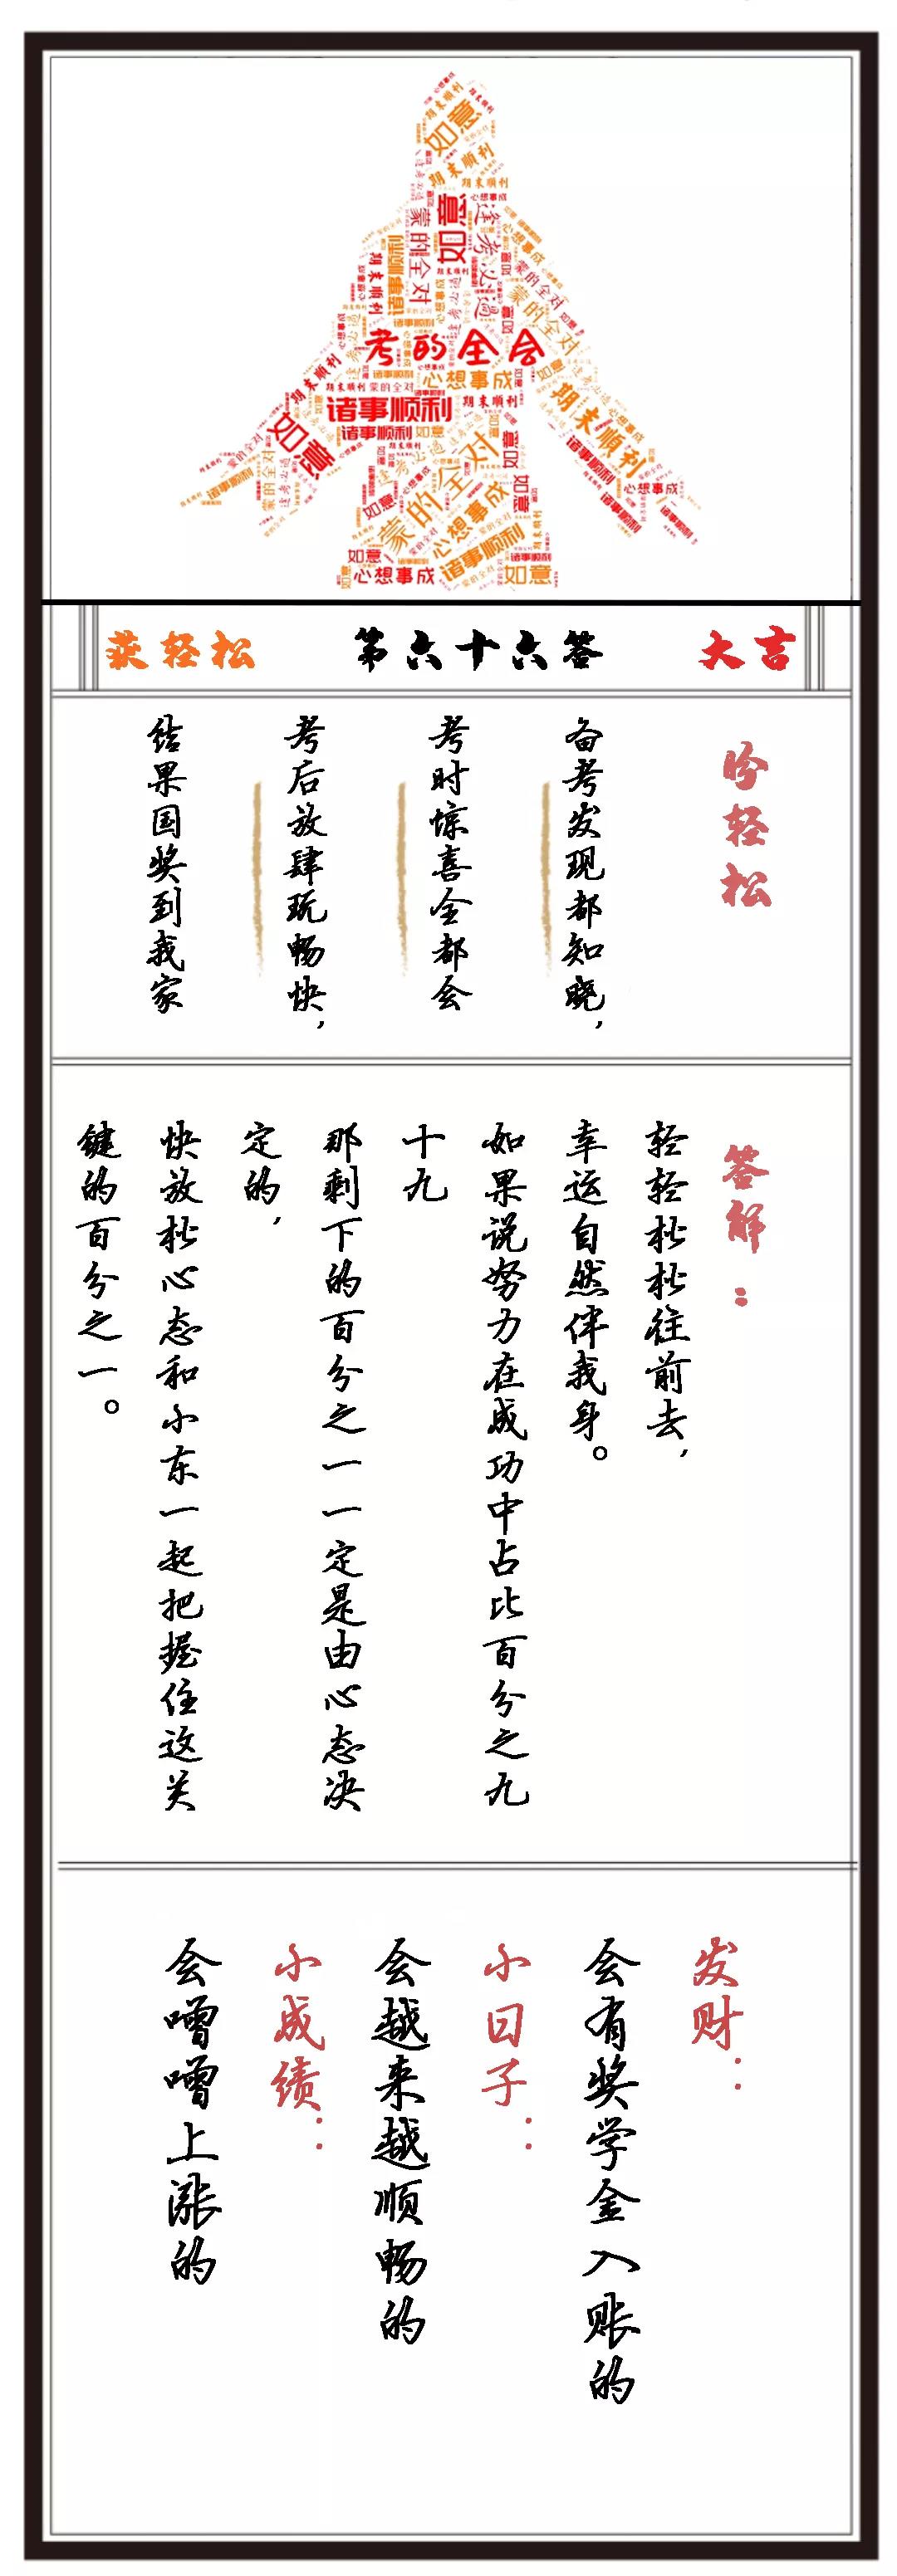 如意
期末顺利
如意
逢考必过
蒙的全对
诸事顺利
心想事成
考的全会
心想事成
诸事顺利
期末顺利
诸事顺利
如意
蒙的全对
期末顺利
诸事顺利
心想事成
心想事成
诸事顺利
如意
心想事成
诸事顺利
如意
获轻松 第六十六答 大吉
盼轻松
备考发现都知晓，
考时惊喜全都会
考后放肆玩畅快，
结果国奖到我家
答解：
轻轻松松往前去，
幸运自然伴我身。
如果说努力在成功中占比百分之九
十九
那剩下的百分之一一定是由心态决
定的，
快放松心态和小东一起把握住这关
键的百分之一。
发财：
会有奖学金入账的
小日子：
会越来越顺畅的
小成绩：
会噌噌上涨的